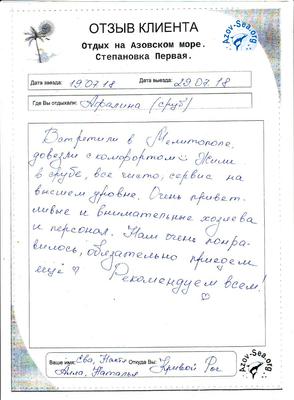 ОТЗЫВ КЛИЕНТА
Отдых на Азовском море.
Степановка Первая.
Azov-Sea.org
Дата заезда: 19.07.18 Дата выезда: 29.07.18
Где Вы отдыхали: Афалина (сруб)
Встретили в Мелитополе,
довезли с комфортом Жили
в срубе, все чисто, сервис на
высшем уровне. Очень привет-
ливые и внимательные хозяева
и персонал. Нам очень понра-
вилось, обязательно приедем
ещё Рекомендуем всем!
Ваше имя: Ева, Откуда Вы: Кривой Рог
Анна, Наталья
Azov-Sea.org